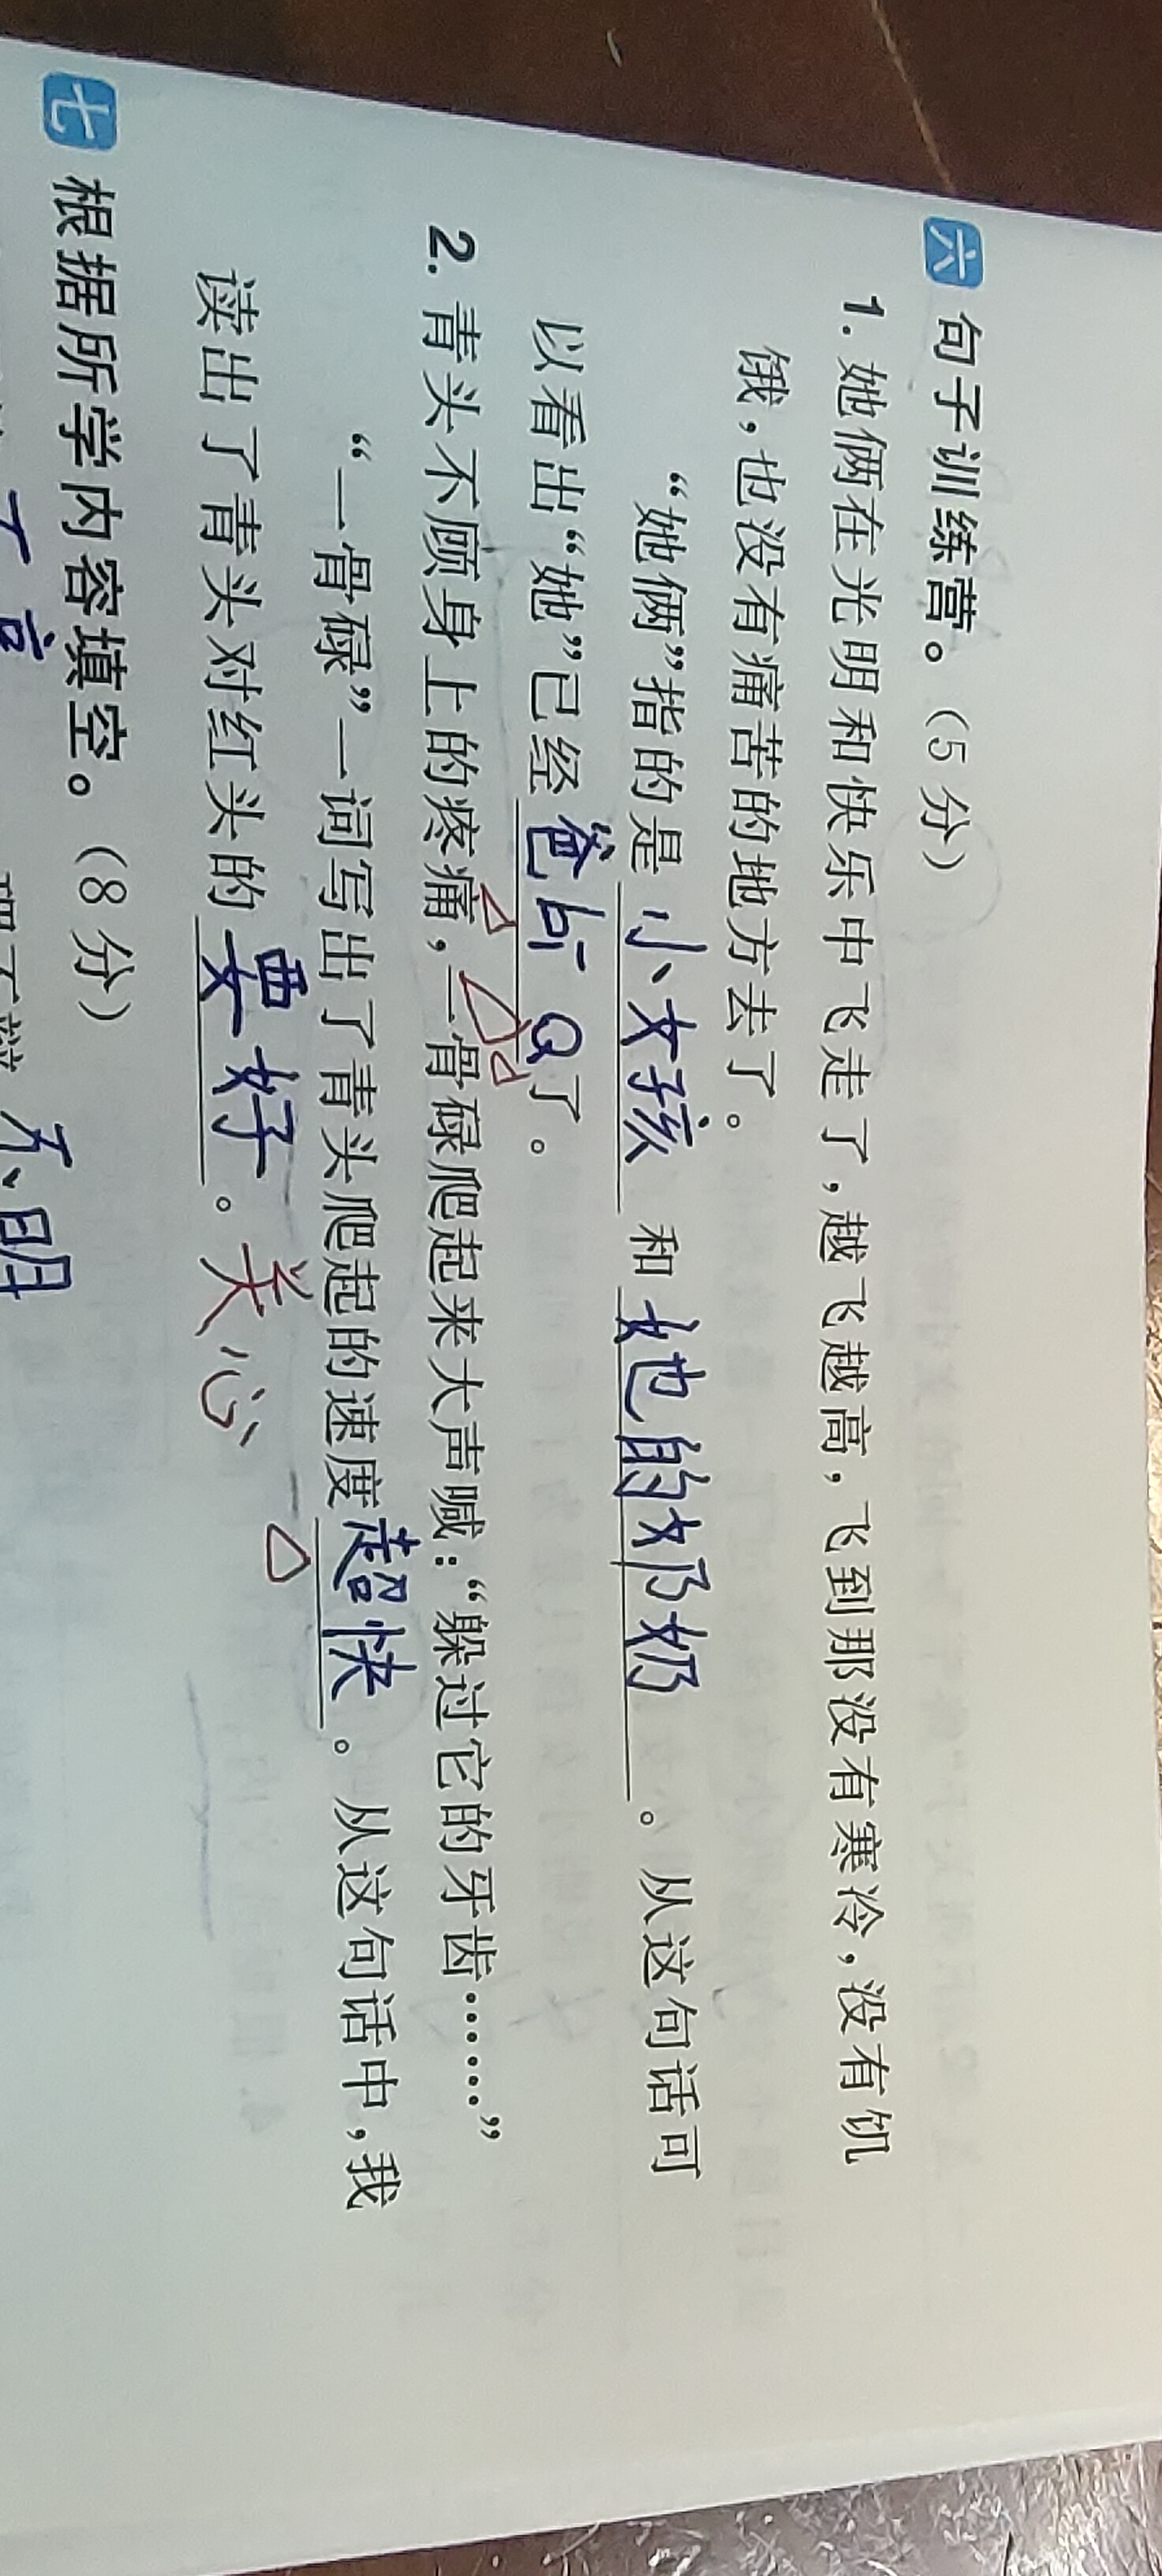 六 句子训练营。（5分）
1. 她俩在光明和快乐中飞走了，越飞越高，飞到那没有寒冷，没有饥
饿，也没有痛苦的地方去了。
“她俩”指的是 小女孩 和 她的奶奶 。从这句话可
以看出“她”已经 爸比Q 了。
2. 青头不顾身上的疼痛，一骨碌爬起来大声喊：“躲过它的牙齿……”
“一骨碌”一词写出了青头爬起的速度 超快 。从这句话中，我
读出了青头对红头的 要好 。关心
七 根据所学内容填空。（8分）
不明